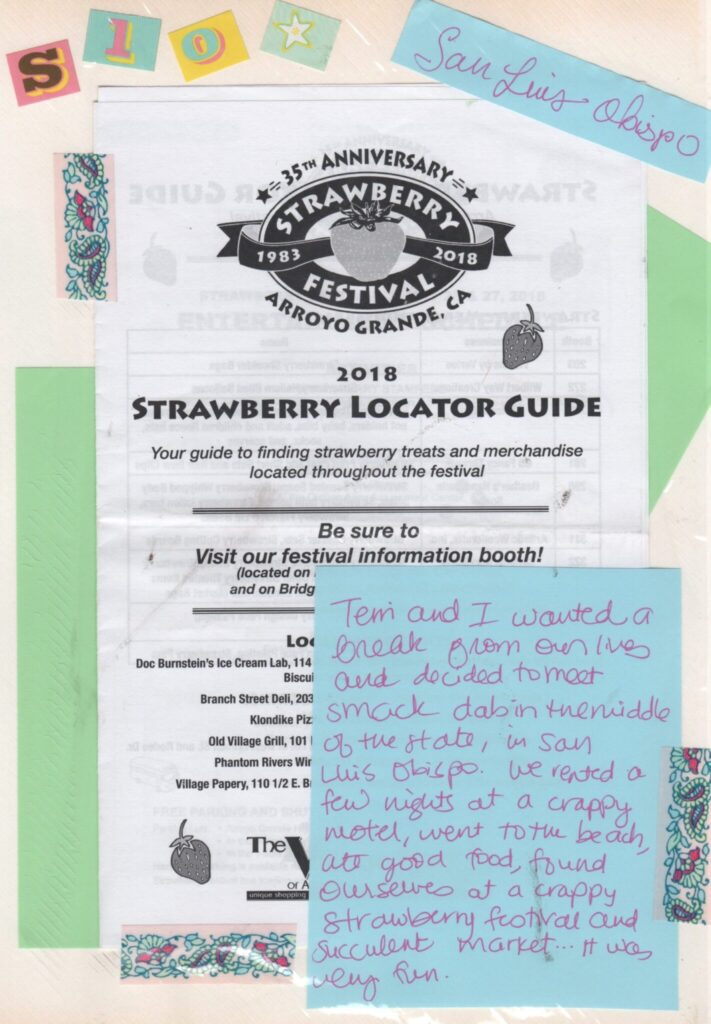 SLO
San Luis Obispo
35TH ANNIVERSARY
STRAWBERRY
1983 2018
FESTIVAL
ARROYO GRANDE, CA
2018
STRAWBERRY LOCATOR GUIDE
Your guide to finding strawberry treats and merchandise
located throughout the festival
Be sure to
Visit our festival information booth!
(located on
and on Bridg
Lo
Doc Burnstein's Ice Cream Lab, 114
Biscui
Branch Street Deli, 203
Klondike Piz
Old Village Grill, 101
Phantom Rivers Win
Village Papery, 110 1/2 E. B
The V
OF A
unique shopping
Terri and I wanted a
break from our lives
and decided to meet
smack dab in the middle
of the state, in San
Luis Obispo. We rented a
few nights at a crappy
motel, went to the beach,
ate good food, found
ourselves at a crappy
strawberry festival and
succulent market... it was
very fun.